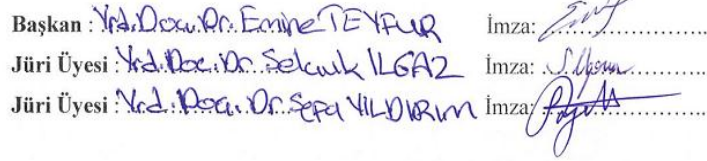 Başkan : Yrd. Doç. Dr. Emine TEYFUR İmza: ........................
Jüri Üyesi : Yrd. Doç. Dr. Selçuk ILGAZ İmza: ........................
Jüri Üyesi : Yrd. Doç. Dr. Sefa YILDIRIM İmza: ........................